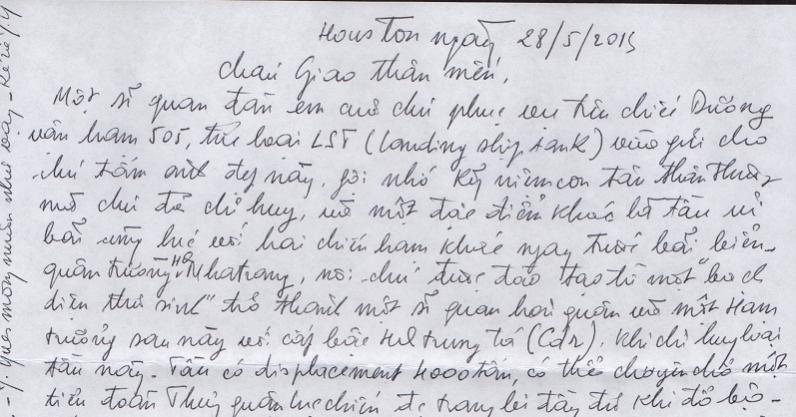 Houston ngày 28/5/2015
cháu Giao thân mến,
Một sĩ quan đàn em cũ chú phục vụ trên chiến Dương
vận hạm 505, thuộc loại LST (Landing ship tank) vừa gửi cho
chú tấm ảnh đẹp này, gợi nhớ kỷ niệm con tàu thân thương
mà chú đã chỉ huy, và một đặc điểm khác là tàu ủi
bãi cùng lúc với hai chiến hạm khác ngay trước bãi biển
quân trường HQ Nhatrang, nơi chú được đào tạo từ một "bạch
diện thư sinh" trở thành một sĩ quan hải quân và một Hạm
trưởng sau này với cấp bậc HQ trung tá (Cdr), khi chỉ huy loại
tàu này. Tàu có displacement 4000 tấn, có thể chuyên chở một
tiểu đoàn Thuỷ quân lục chiến được trang bị đầy đủ khi đổ bộ -